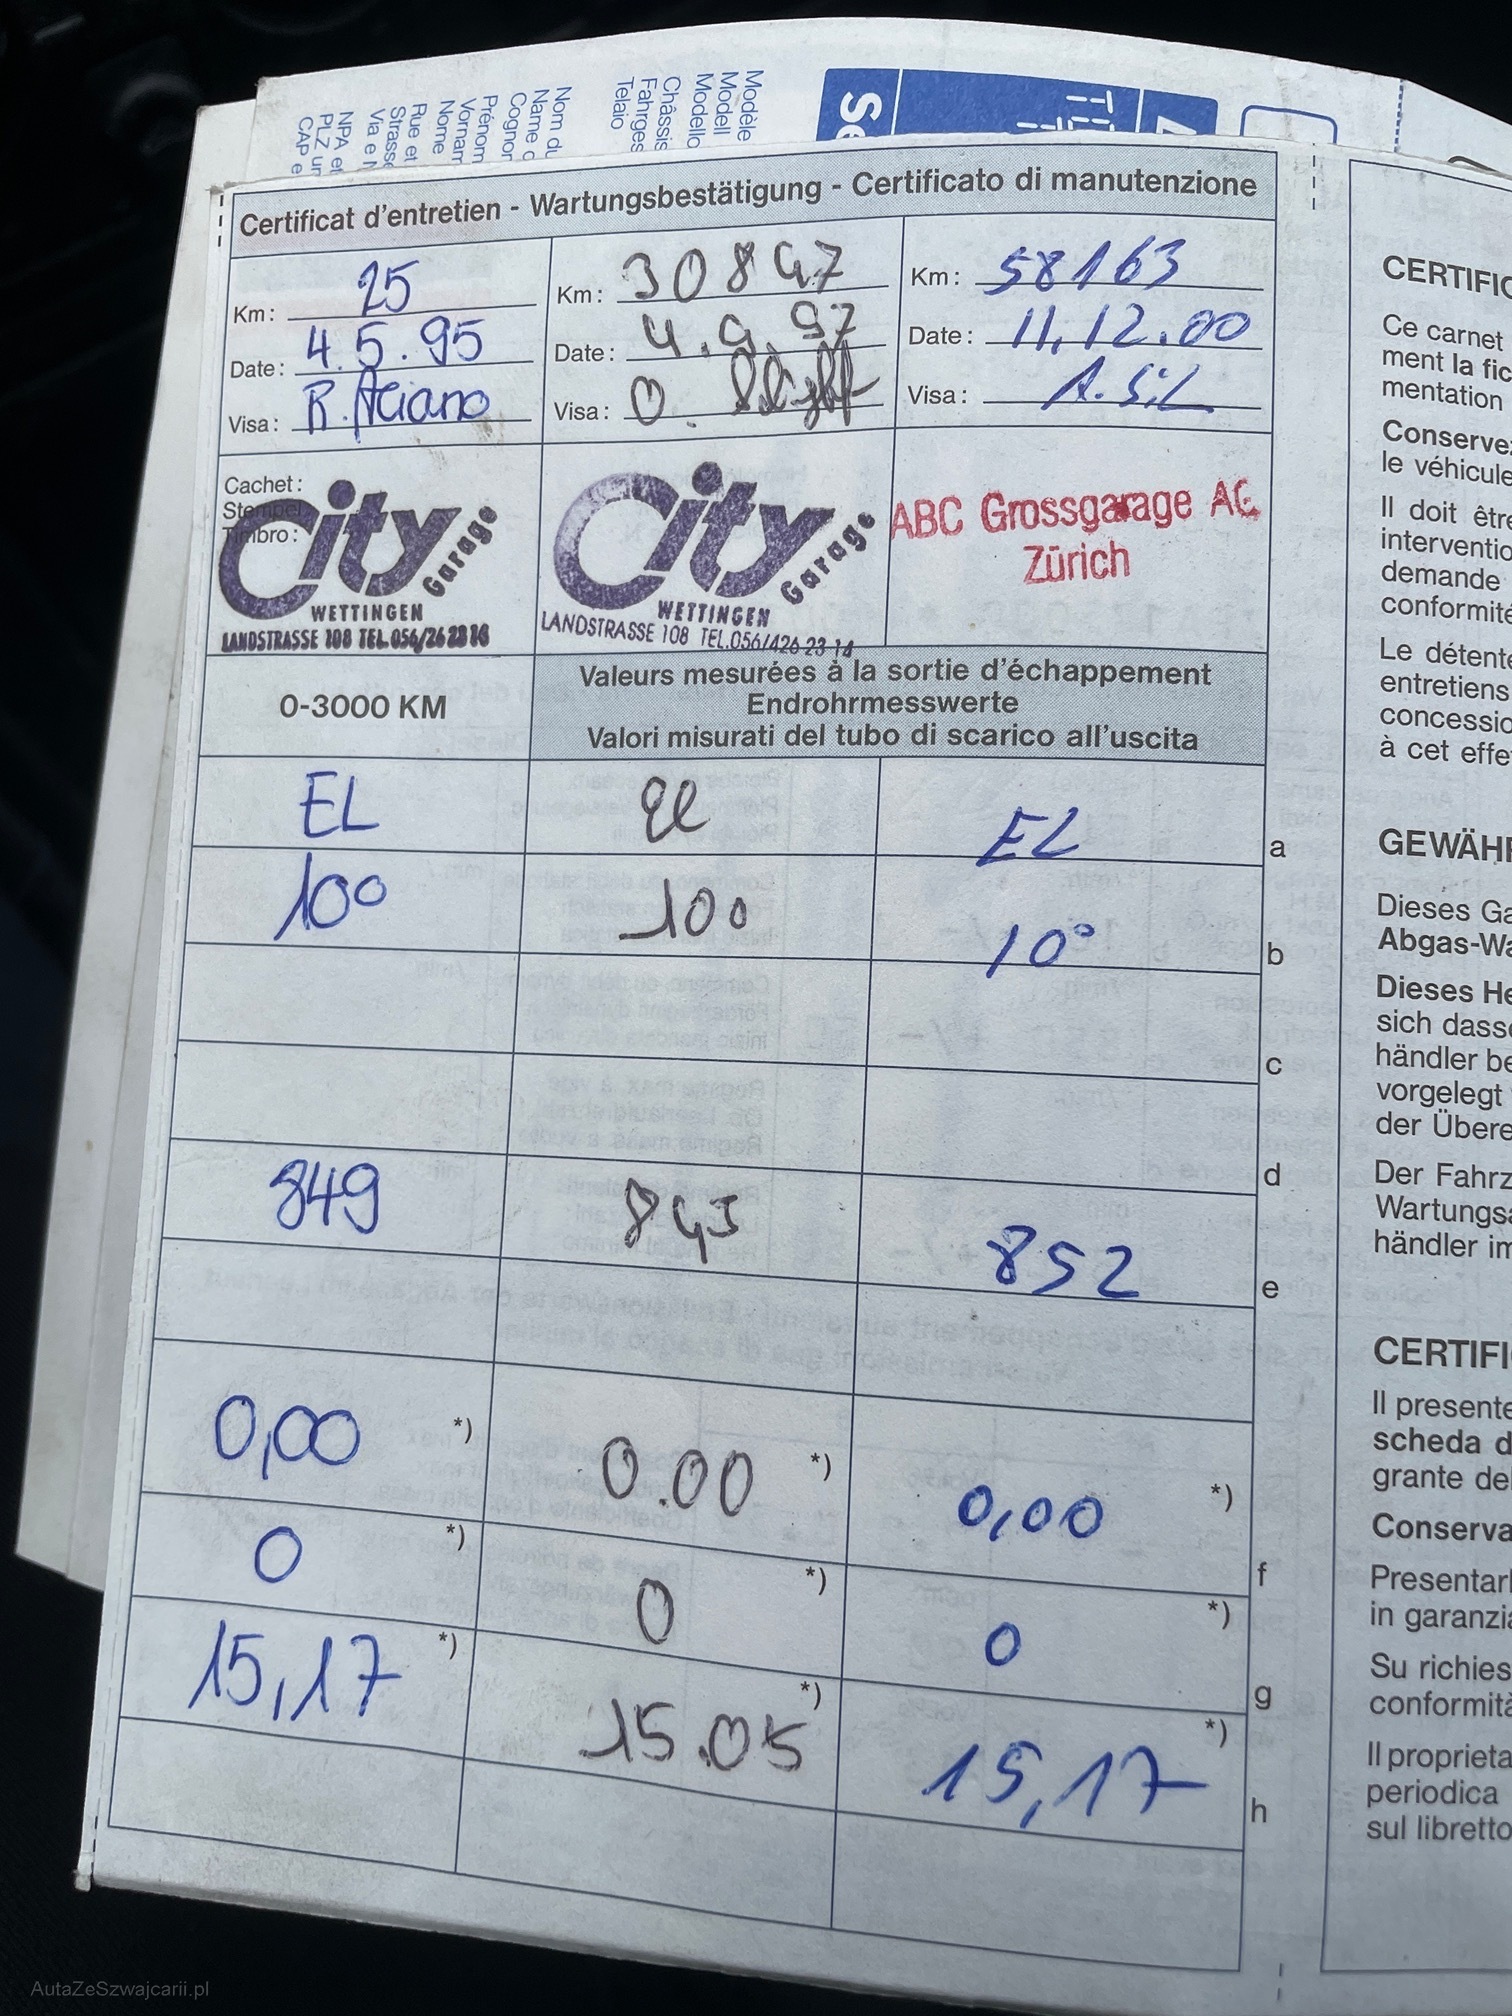 Modèle
Modell
Modello
Châssis
Fahrges
Telaio
Nom du
Name
Cognor
Prénom
Vornam
Nome
Rue et
Strasse
Via e
NPA et
PLZ un
CAP e
Certificat d'entretien - Wartungsbestätigung - Certificato di manutenzione
Km: 25
Date: 4.5.95
Visa: R.
Km: 30847
Date: 4.9.97
Visa: O.
Km: 58163
Date: 11.12.00
Visa: A.
Cachet:
Stempel
Timbro:
City Garage
WETTINGEN
LANDSTRASSE 108 TEL.056/26 23 14
City Garage
WETTINGEN
LANDSTRASSE 108 TEL.056/426 23 14
ABC Grossgarage AG
Zürich
0-3000 KM
Valeurs mesurées à la sortie d'échappement
Endrohrmesswerte
Valori misurati del tubo di scarico all'uscita
EL El EL a
10° 10° 10° b
c
d
849 845 852 e
0,00 *) 0.00 *) 0,00 *) f
0 *) 0 *) 0 *) g
15,17 *) 15.05 *) 15,17 *) h
CERTIFIC
Ce carnet
ment la fic
mentation
Conservez
le véhicule
Il doit être
interventio
demande
conformité
Le détente
entretiens
concessio
à cet effe
GEWÄHR
Dieses Ga
Abgas-Wa
Dieses He
sich dasse
händler be
vorgelegt
der Übere
Der Fahrz
Wartungsa
händler im
CERTIFI
Il presente
scheda d
grante del
Conserva
Presentarl
in garanzia
Su richies
conformità
Il proprieta
periodica
sul libretto
AutaZeSzwajcarii.pl